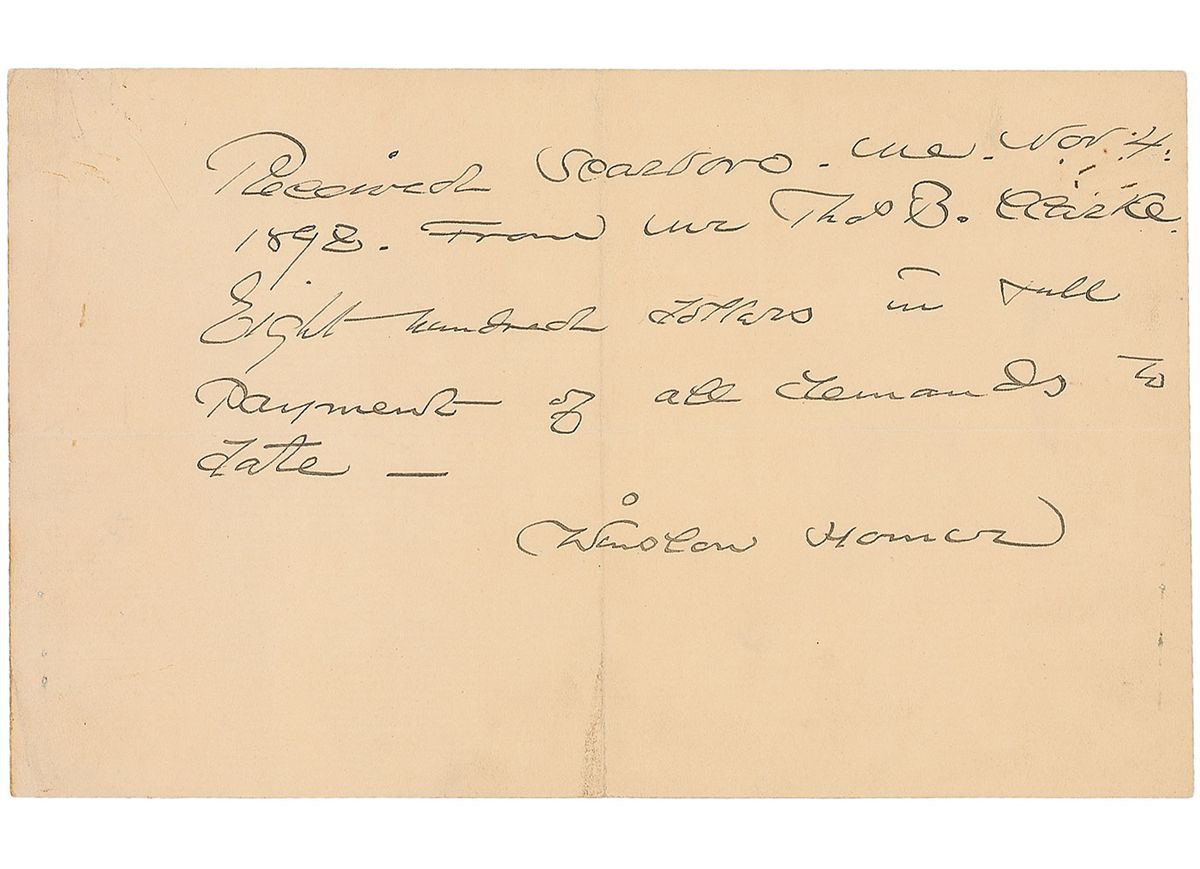 Received Scarboro. Me. Nov. 4.
1892. From Mr Thos B. Clarke.
Eight hundred dollars in full
Payment of all demands to
date —
Winslow Homer